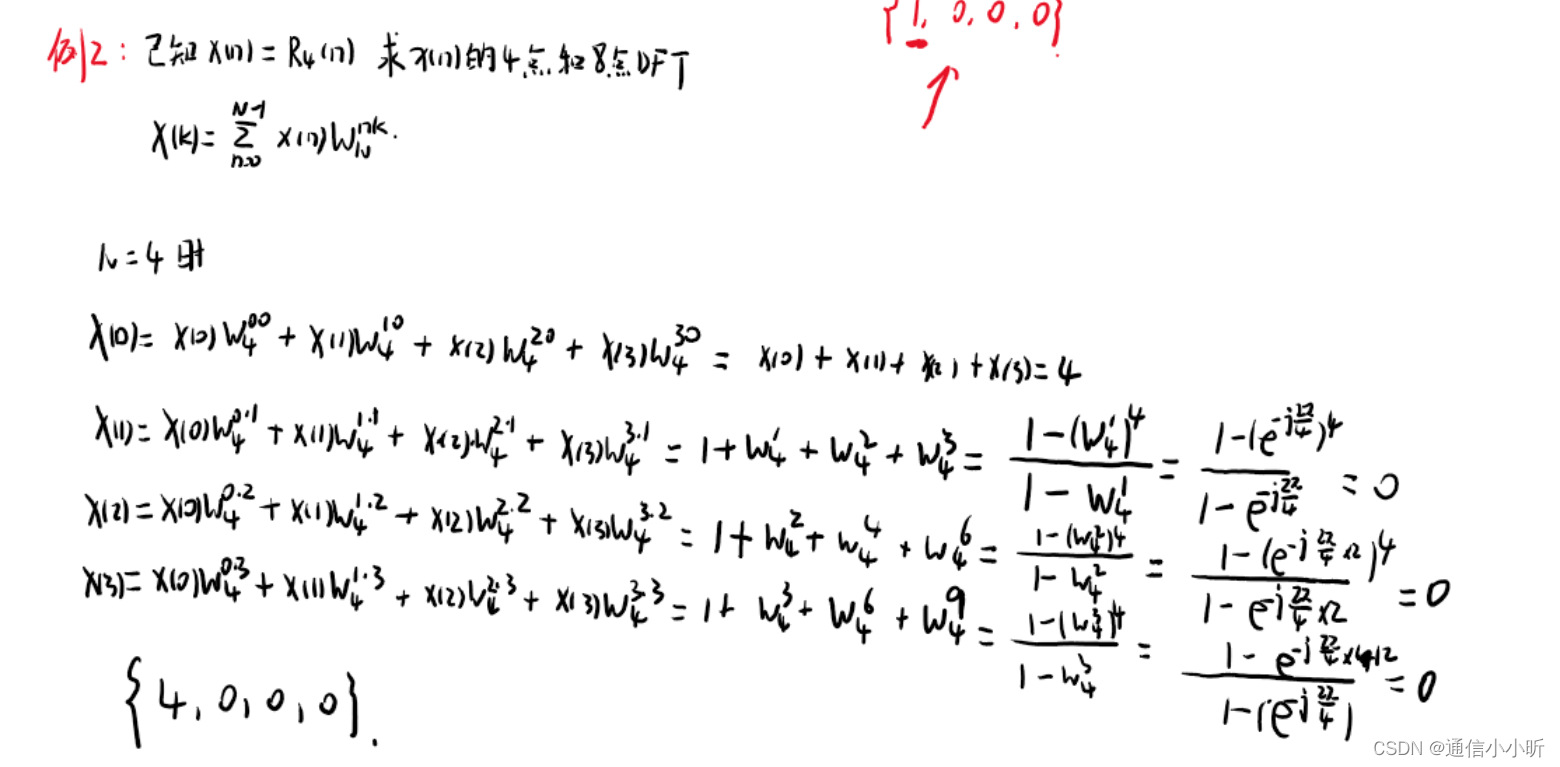 {1, 0, 0, 0}
例2: 已知 x(n) = R₄(n) 求x(n)的4点和8点DFT
X(k) = Σ_{n=0}^{N-1} x(n)W_N^{nk}.
N = 4 时
X(0) = x(0)W_4^{00} + x(1)W_4^{10} + x(2)W_4^{20} + x(3)W_4^{30} = x(0) + x(1) + x(2) + x(3) = 4
X(1) = x(0)W_4^{0·1} + x(1)W_4^{1·1} + x(2)W_4^{2·1} + x(3)W_4^{3·1} = 1 + W_4^1 + W_4^2 + W_4^3 = \frac{1-(W_4^1)^4}{1-W_4^1} = \frac{1-(e^{-j\frac{2π}{4}})^4}{1-e^{-j\frac{2π}{4}}} = 0
X(2) = x(0)W_4^{0·2} + x(1)W_4^{1·2} + x(2)W_4^{2·2} + x(3)W_4^{3·2} = 1 + W_4^2 + W_4^4 + W_4^6 = \frac{1-(W_4^2)^4}{1-W_4^2} = \frac{1-(e^{-j\frac{2π}{4}×2})^4}{1-e^{-j\frac{2π}{4}×2}} = 0
X(3) = x(0)W_4^{0·3} + x(1)W_4^{1·3} + x(2)W_4^{2·3} + x(3)W_4^{3·3} = 1 + W_4^3 + W_4^6 + W_4^9 = \frac{1-(W_4^3)^4}{1-W_4^3} = \frac{1-e^{-j\frac{2π}{4}×12}}{1-(e^{-j\frac{2π}{4}})} = 0
{4, 0, 0, 0}.
CSDN @通信小小昕